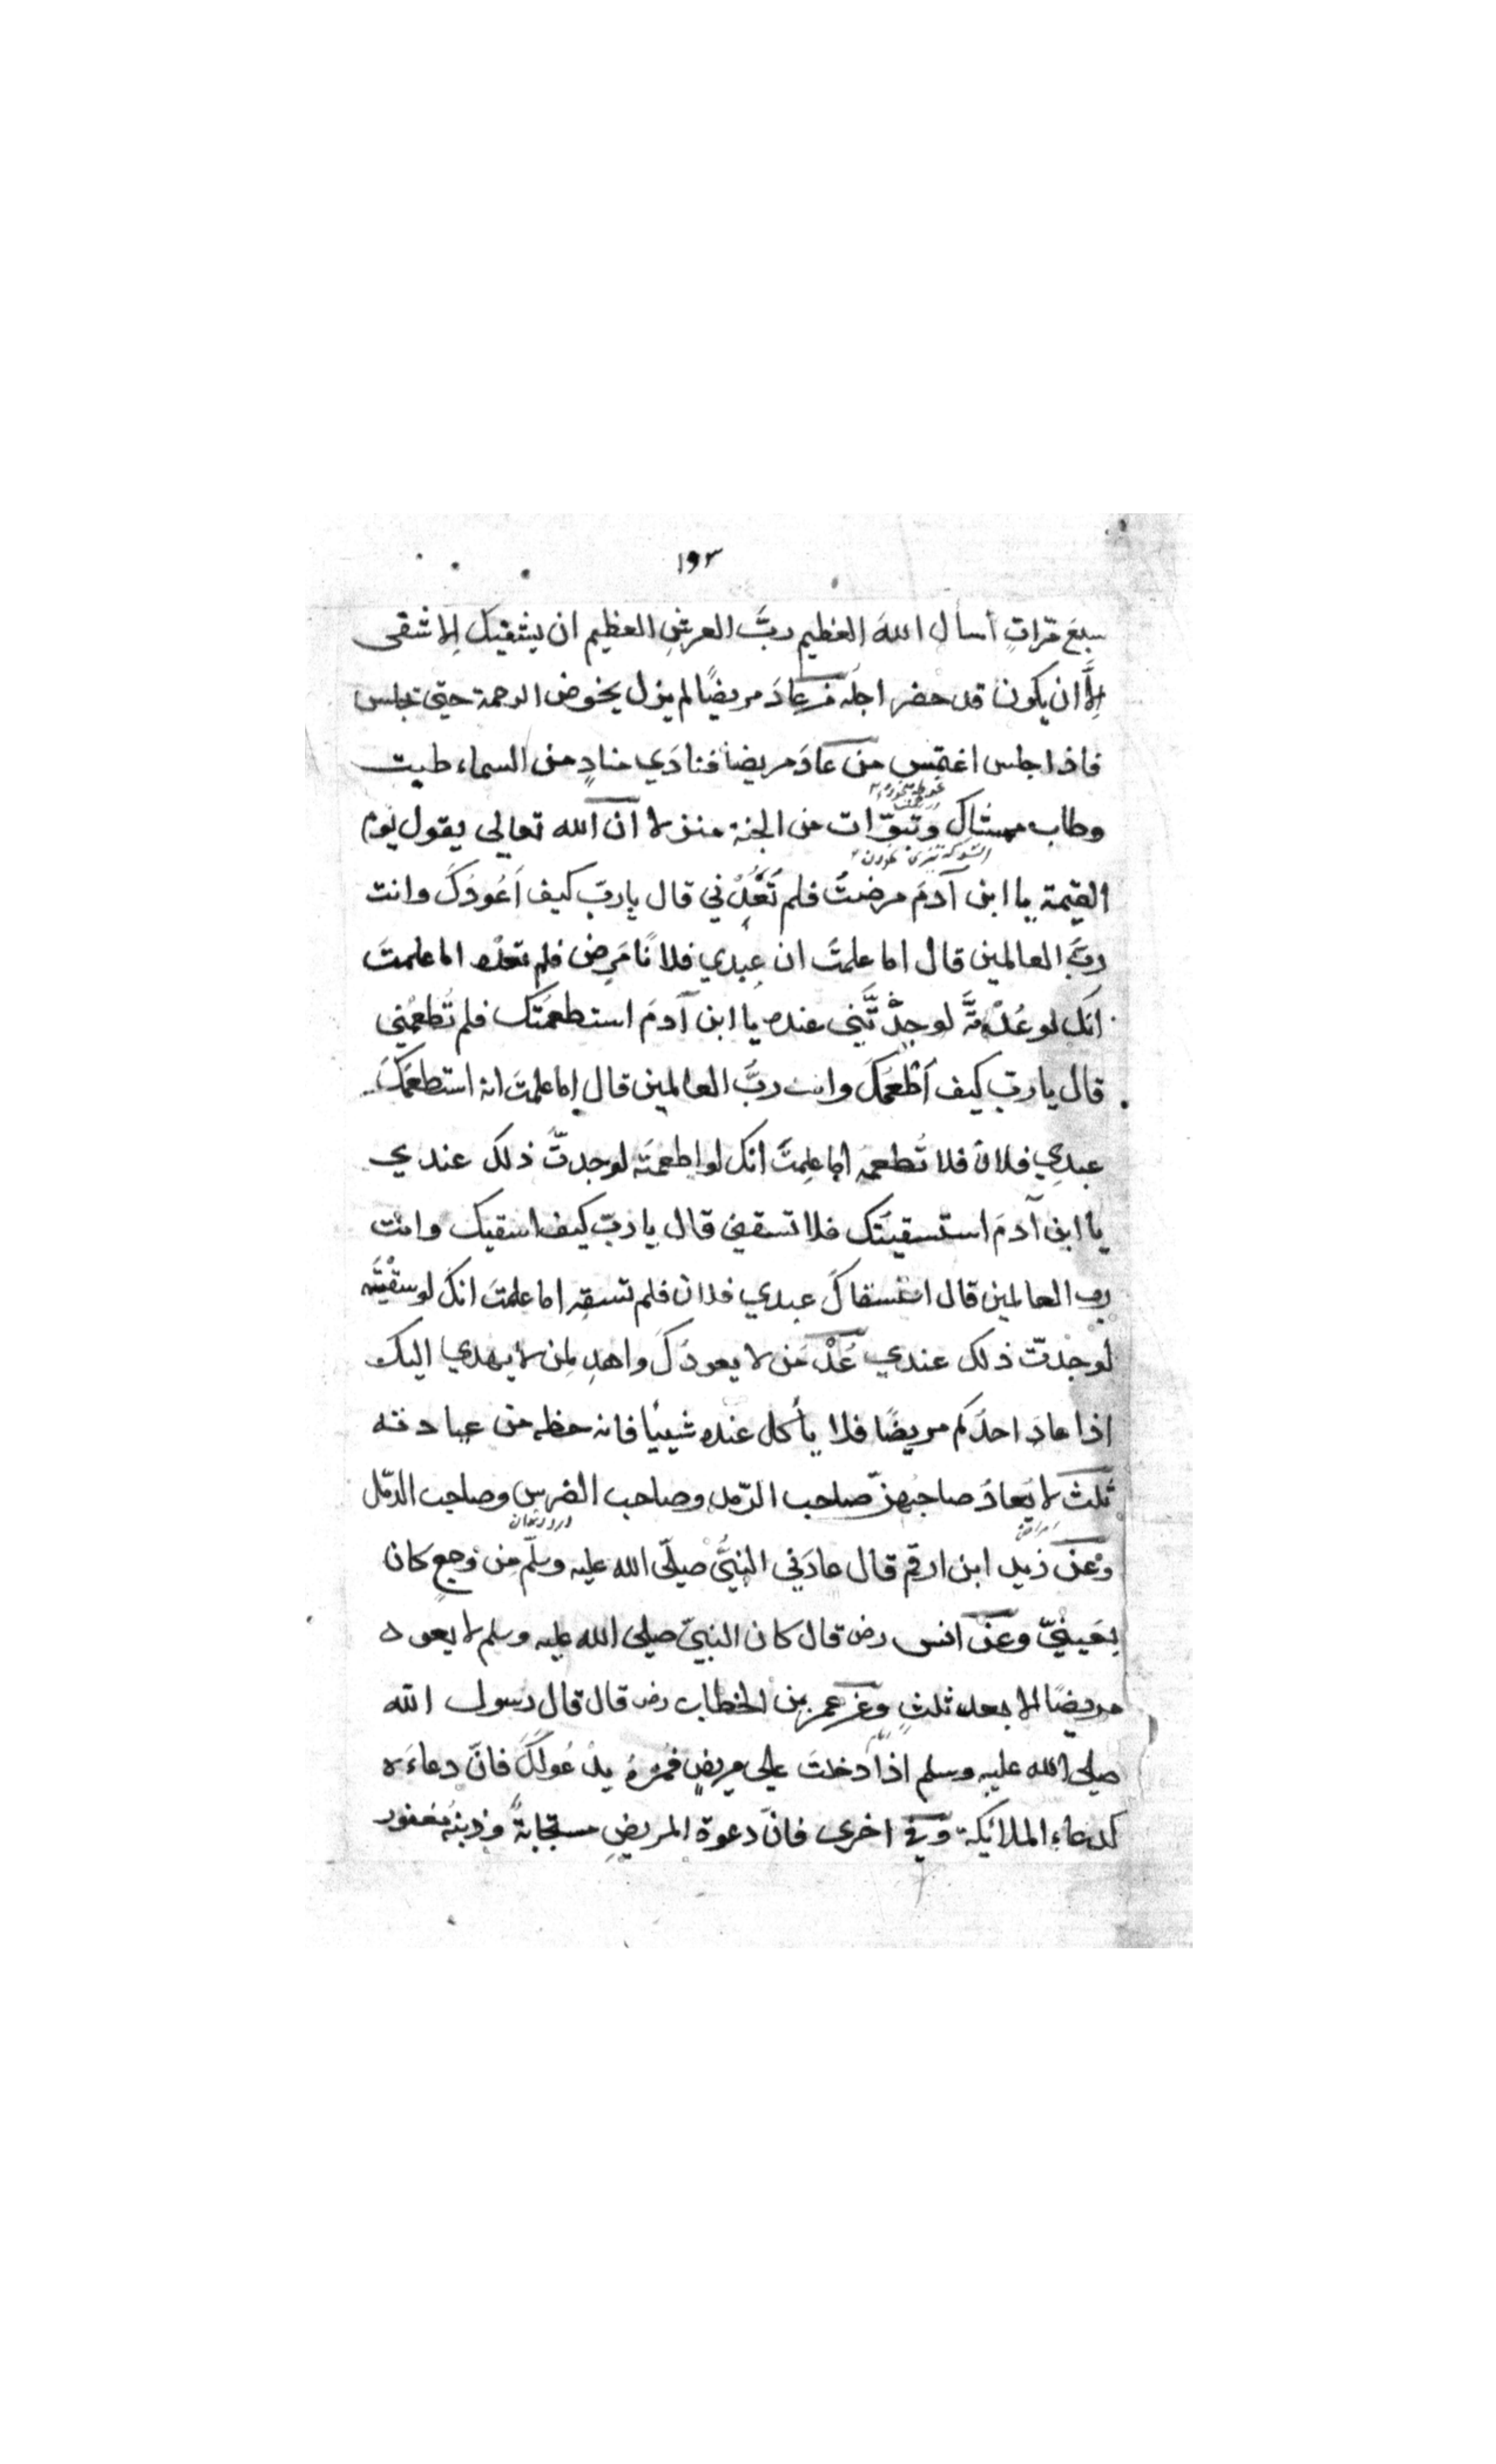 ١٩٣
سبعَ مرّاتٍ أسأل اللهَ العظيم ربَّ العرشِ العظيم ان يشفيك الا شفى
اِلَّا ان يكون قد حضر اجلُه من عادَ مريضًا لم يزل يخوض الرحمة حتى يجلس
فاذا جلس اغتمس من عادَ مريضا فنادَي منادٍ من السماء طبت
وطاب ممشاك وتبوّات من الجنة منزلا ان الله تعالى يقول يوم
القيمة يا ابن آدمَ مرضتُ فلم تَعُدْني قال يا ربّ كيف اَعُودُكَ وانت
ربَّ العالمين قال اما علمتَ ان عبدي فلانًا مَرِض فلم تعده اما علمتَ
انّك لو عُدْتَّهَ لوجدْتَّني عنده يا ابن آدمَ استطعمتُك فلم تُطعمْني
قال يا ربّ كيف اُطعمُكَ وانت ربَّ العالمين قال اما علمتَ انه استطعمَكَ
عبدِي فلانٌ فلا تُطعمه اما علِمتَ انّك لو اطعمتَه لوجدتَّ ذلك عندي
يا ابن آدمَ استسقيتُك فلا تسقني قال يا ربّ كيف اسقيك وانت
رب العالمين قال استسقاكَ عبدي فلان فلم تسقِه اما علمتَ انكَ لو سقيْتَه
لوجدتّ ذلك عندي عُدْ مَن لا يعودُكَ واهدِ لمن لا يهدي اليك
اذا عادَ احدُكم مريضًا فلا يأكل عنده شيئًا فانه حظه من عيادته
ثلث لا يُعادُ صاحبُهنّ صاحب الرّمد وصاحب الضرس وصاحب الدمّل
وعن زيد ابن ارقم قال عادَني النبيُّ صلّى الله عليه وسلّم مِن وجعٍ كان
بعَينيّ وعن انس رض قال كان النبيّ صلى الله عليه وسلم لا يعود
مريضًا الا بعد ثلثٍ وعن عمر بن الخطاب رض قال قال رسول الله
صلى الله عليه وسلم اذا دخلتَ على مريضٍ فمُرْهُ يدْعُو لكَ فانّ دعاءَه
كدعاء الملائكة وفي اخرى فانّ دعوة المريضِ مستجابةٌ وذنبُه مغفور